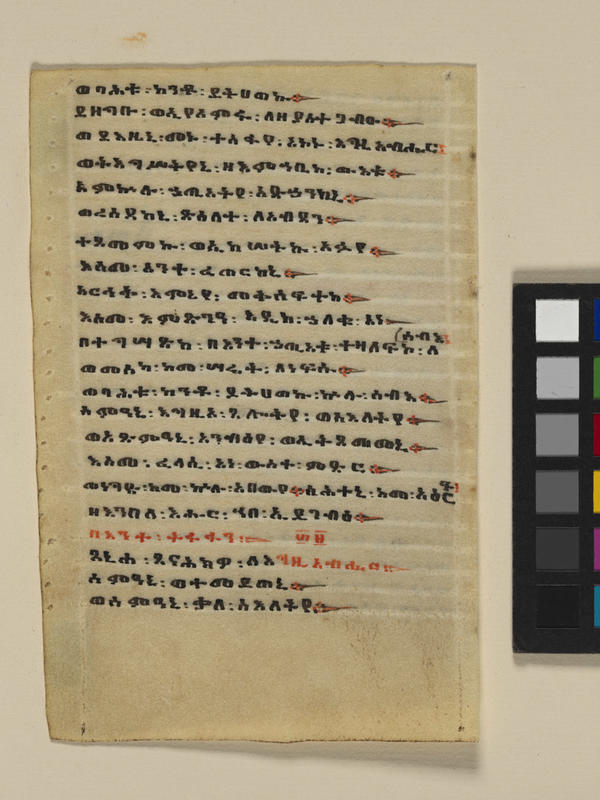 ወባሕቱ፡ከንቶ፡ይትሀወኩ።
ይዘግቡ፡ወኢያአምሩ፡ለዘ ያስተጋብኡ።
ወይእዜኒ፡መኑ፡ተስፋየ፡አኮኑ፡እግዚአብሔር፤
ወትእግሥትየኒ፡ዘእምኀቤከ፡ውእቱ።
እምኵሉ፡ኃጢአትየ፡አድኅንከኒ።
ወረሰይከኒ፡ጽእለተ፡ለአብዳን።
ተጸመምኩ፡ወኢከሠትኩ፡አፉየ።
እስመ፡አንተ፡ፈጠርከኒ።
አርሕቅ፡እምኔየ፡መቅሰፍተከ።
እስመ፡እምጽንዓ፡እዴከ፡ኃለቁ፡አነ።
በተግሣጽከ፡በእንተ፡ኃጢአቱ፡ተዛለፍኮ፡ለ(ሰብእ፤
ወመሰውከ፡ከመ፡ሣሬት፡ለነፍሱ።
ወባሕቱ፡ከንቶ፡ይትሀወኩ፡ኵሉ፡ሰብእ።
ስምዓኒ፡እግዚኦ፡ጸሎትየ፡ወስእለትየ።
ወአጽምዓኒ፡አንብዕየ፡ወኢትጸመመኒ።
እስመ፡ፈላሲ፡አነ፡ውስተ፡ምድር።
ወነግድ፡ከመ፡ኵሉ፡አበውየ።ስሕተኒ፡ከመ፡አዕርፍ፤
ዘእንበለ፡እሖር፡ኀበ፡ኢይገብእ።
በእንተ፡ተፋቅሮ። ፴፱
ጸኒሐ፡ጸናሕክዎ፡ለእግዚአብሔር።
ሰምዓኒ፡ወተመይጠኒ።
ወሰምዓኒ፡ቃለ፡ስእለትየ።